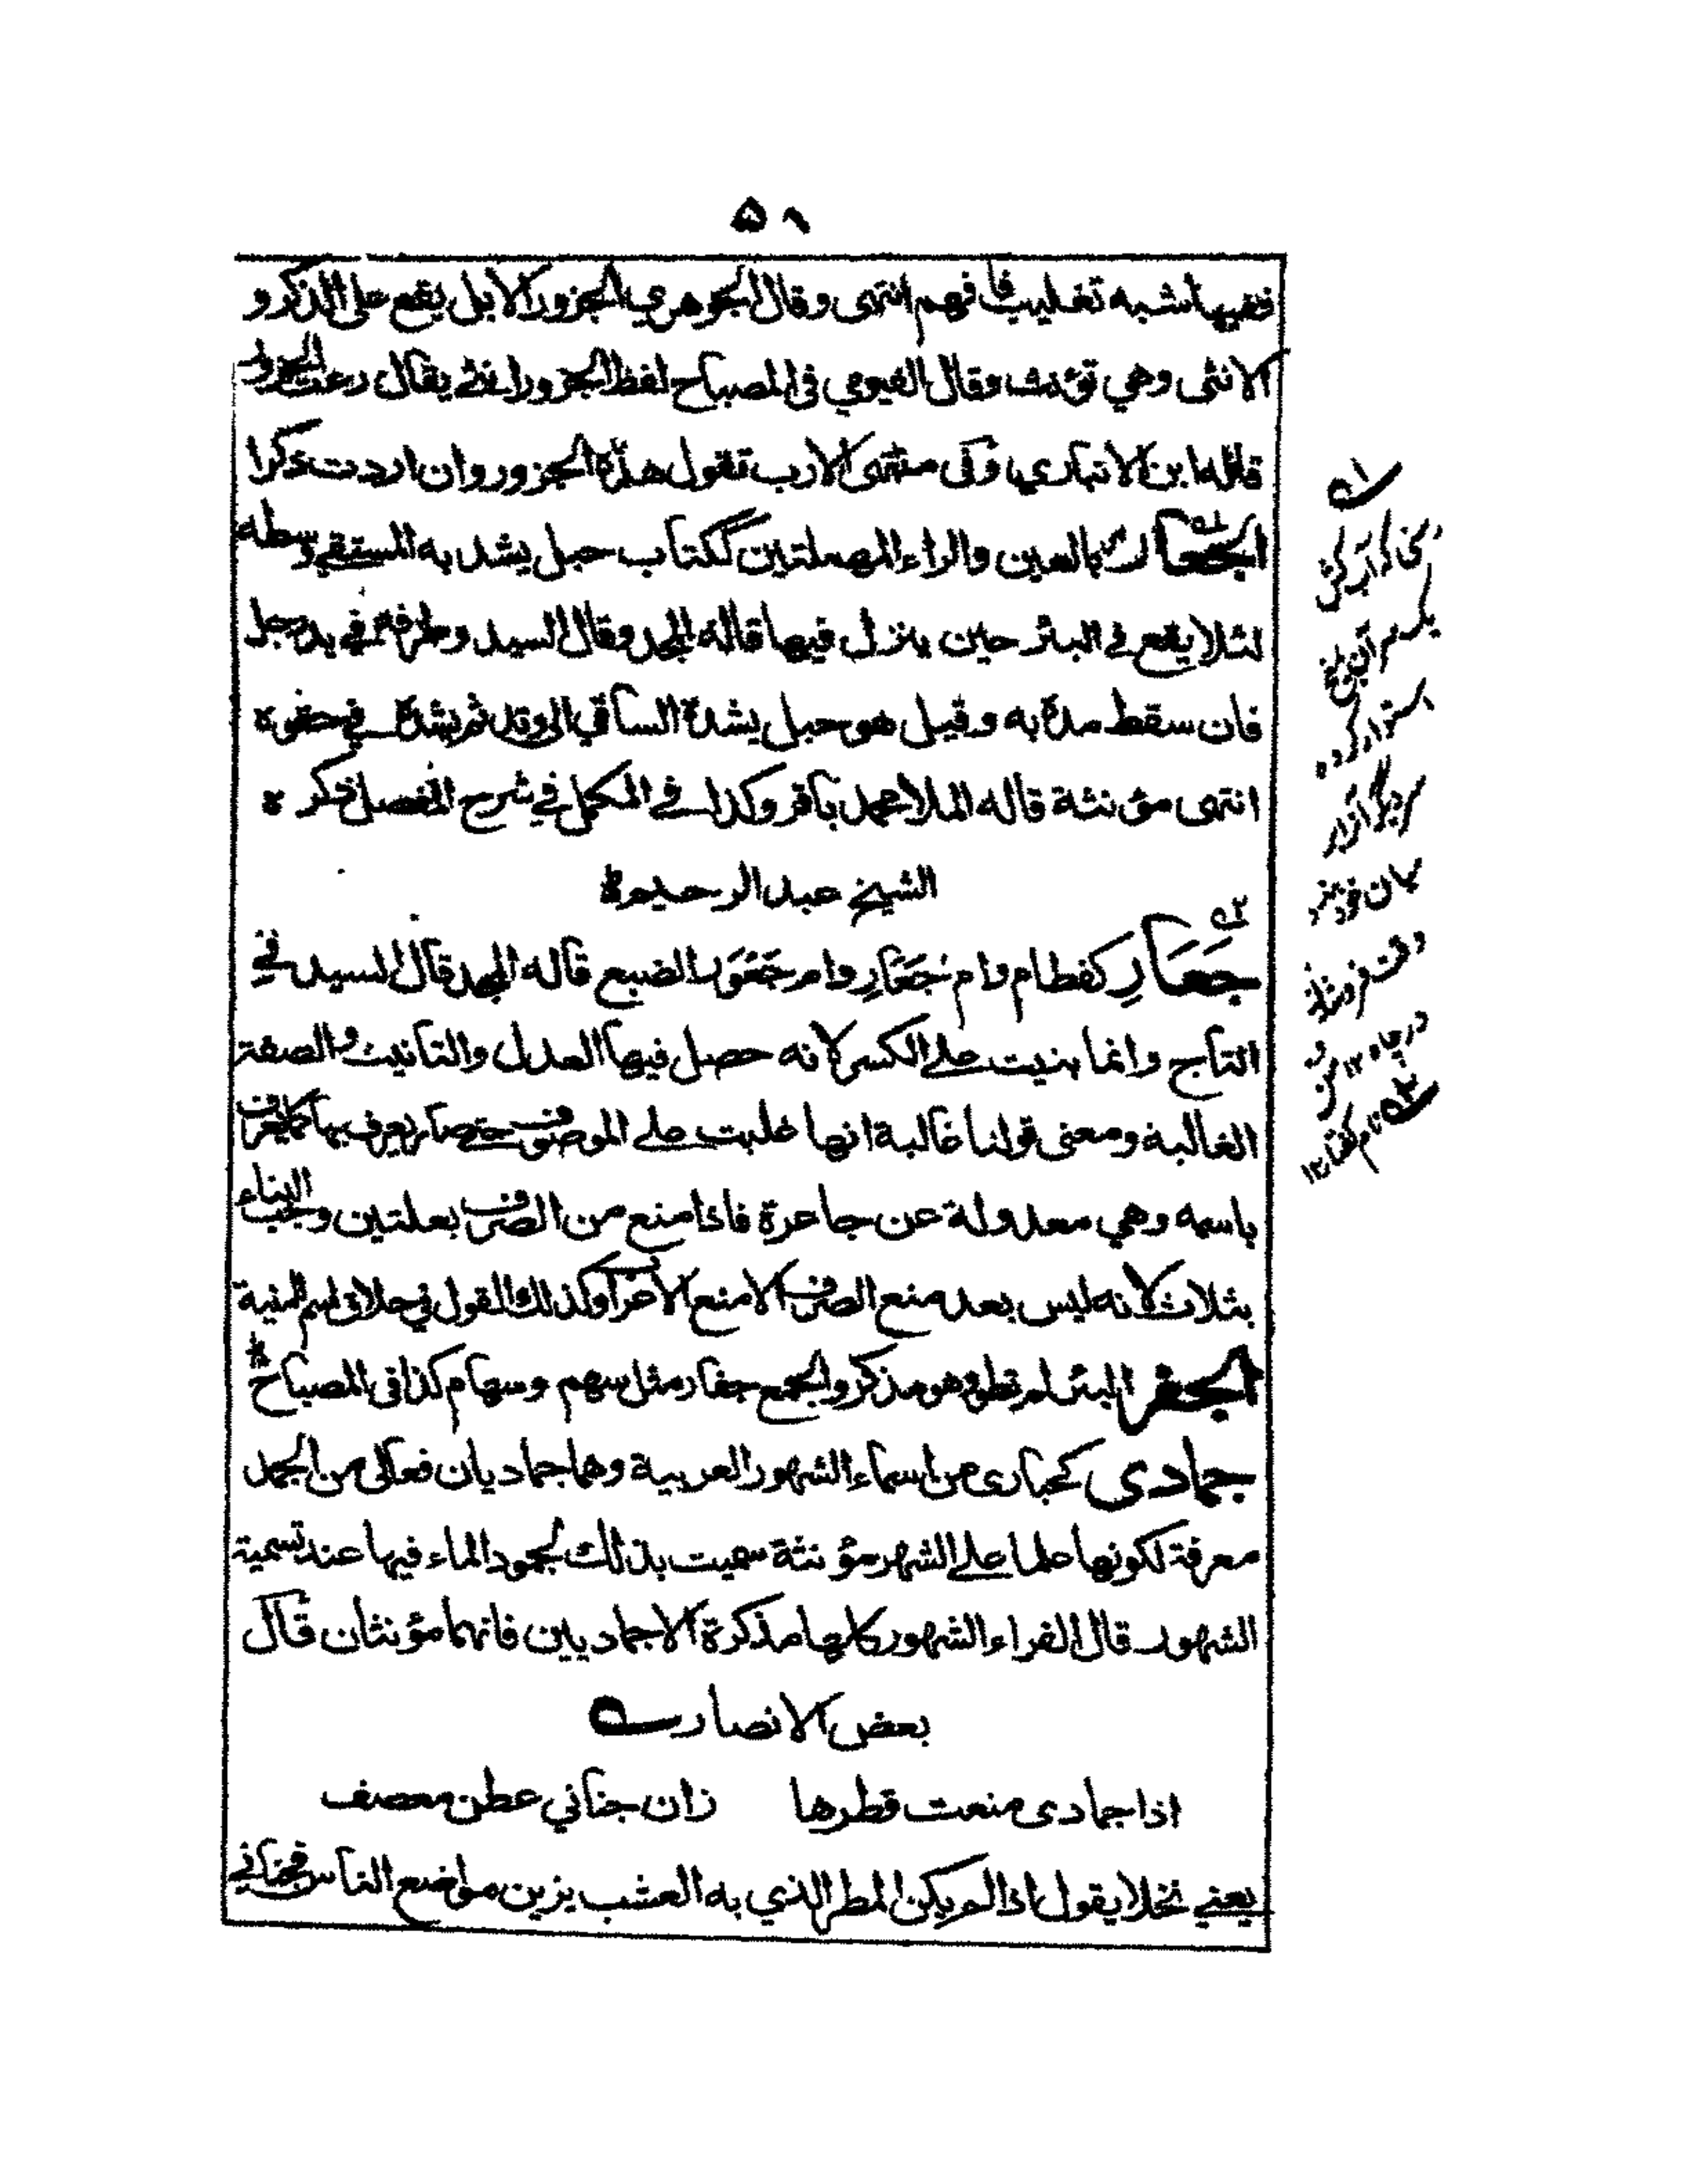 ٥٨
ففيها شبه تغليب فافهم انتهى وقال الجوهري الجزور الابل يقع على الذكر و
الانثى وهي تؤنث وقال الفيومي في المصباح لفظ الجزور انثى يقال رعت الجزور
قاله ابن الانباري وفي منتهى الارب تقول هذه الجزور وان اردت ذكرا
الجعار بالعين والراء المهملتين ككتاب حبل يشد به المستقي وسطه
لئلا يقع في البئر حين ينزل فيها قاله المجد وقال السيد وطرفه في يد رجل
فان سقط مده به وقيل هو حبل يشده الساقي الى وتد ثم يشده في حقوه
انتهى مؤنثة قاله الملا محمد باقر وكذا في المكمل في شرح المفصل ذكره
الشيخ عبد الرحيم
جَعَارِ كفطام وام جَعَارِ وام جَعْوَر الضبع قاله المجد قال السيد في
التاج وانما بنيت على الكسر لانه حصل فيها العدل والتانيث والصفة
الغالبة ومعنى قولنا غالبة انها غلبت على الموصوف حتى صار يعرف بها كما يعرف
باسمه وهي معدولة عن جاعرة فاذا منع من الصرف بعلتين وجب البناء
بثلاث لانه ليس بعد منع الصرف الا منع الاعراب وكذلك القول في حلاق اسم المنية
الجفر البئر لم تطو وهو مذكر والجمع جفار مثل سهم وسهام كذا في المصباح
جمادى كحبارى من اسماء الشهور العربية وهما جماديان فعالى من الجمد
معرفة لكونها علما على الشهر مؤنثة سميت بذلك لجمود الماء فيها عند تسمية
الشهور قال الفراء الشهور كلها مذكرة الا جماديين فانهما مؤنثان قال
بعض الانصار
اذا جمادى منعت قطرها زان جناني عطن معصف
يعني نخلا يقول اذا لم يكن المطر الذي به العشب يزين مواضع الناس فجناني